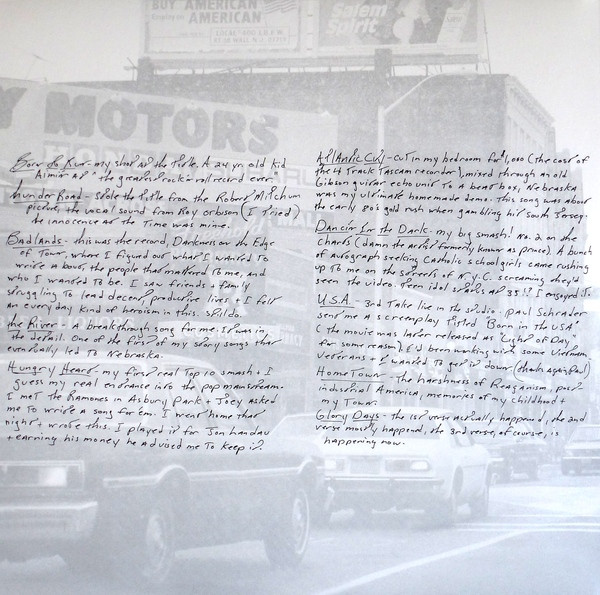 BUY AMERICAN
AMERICAN
Salem
Spirit
Y MOTORS
Born to Run - my shot at the title. A 24 yr old kid
Aimin at "the greatest rock n roll record ever"
Thunder Road - stole the title from the Robert Mitchum
picture, the vocal sound from Roy Orbison (I tried)
the innocence at the time was mine.
Badlands - this was the record, Darkness on the Edge
of Town, where I figured out what I wanted to
write about, the people that mattered to me, and
who I wanted to be. I saw friends + family
struggling to lead decent, productive lives + I felt
an everyday kind of heroism in this. still do.
the River - a breakthrough song for me. It was in
the detail. One of the first of my story songs that
eventually led to Nebraska.
Hungry Heart - my first real top 10 smash + I
guess my real entrance into the pop mainstream.
I met the Ramones in Asbury Park + Joey asked
me to write a song for em. I went home that
night + wrote this. I played it for Jon Landau
+ earning his money he advised me to keep it.
Atlantic City - cut in my bedroom for $1,000 (the cost of
the 4 Track Tascam recorder), mixed through an old
Gibson guitar echo unit to a beat box, Nebraska
was my ultimate home demo. This song was about
the early 80's gold rush when gambling hit south Jersey.
Dancin In the Dark - my big smash! No. 2 on the
charts (damn the artist formerly known as prince). A bunch
of autograph seeking Catholic schoolgirls came rushing
up to me on the streets of N.Y.C. screaming they'd
seen the video. teen idol status at 35!? I enjoyed it.
U.S.A. - 3rd Take live in the studio. paul Schrader
sent me a screenplay titled "Born in the USA"
(the movie was later released as "Light of Day"
for some reason). I'd been working with some Vietnam
Veterans + I wanted to get it down (thanks again Paul)
HomeTown - the harshness of Reaganism, post
industrial America, memories of my childhood +
my Town.
Glory Days - the 1st verse actually happened, the 2nd
verse mostly happened, the 3rd verse, of course, is
happening now.